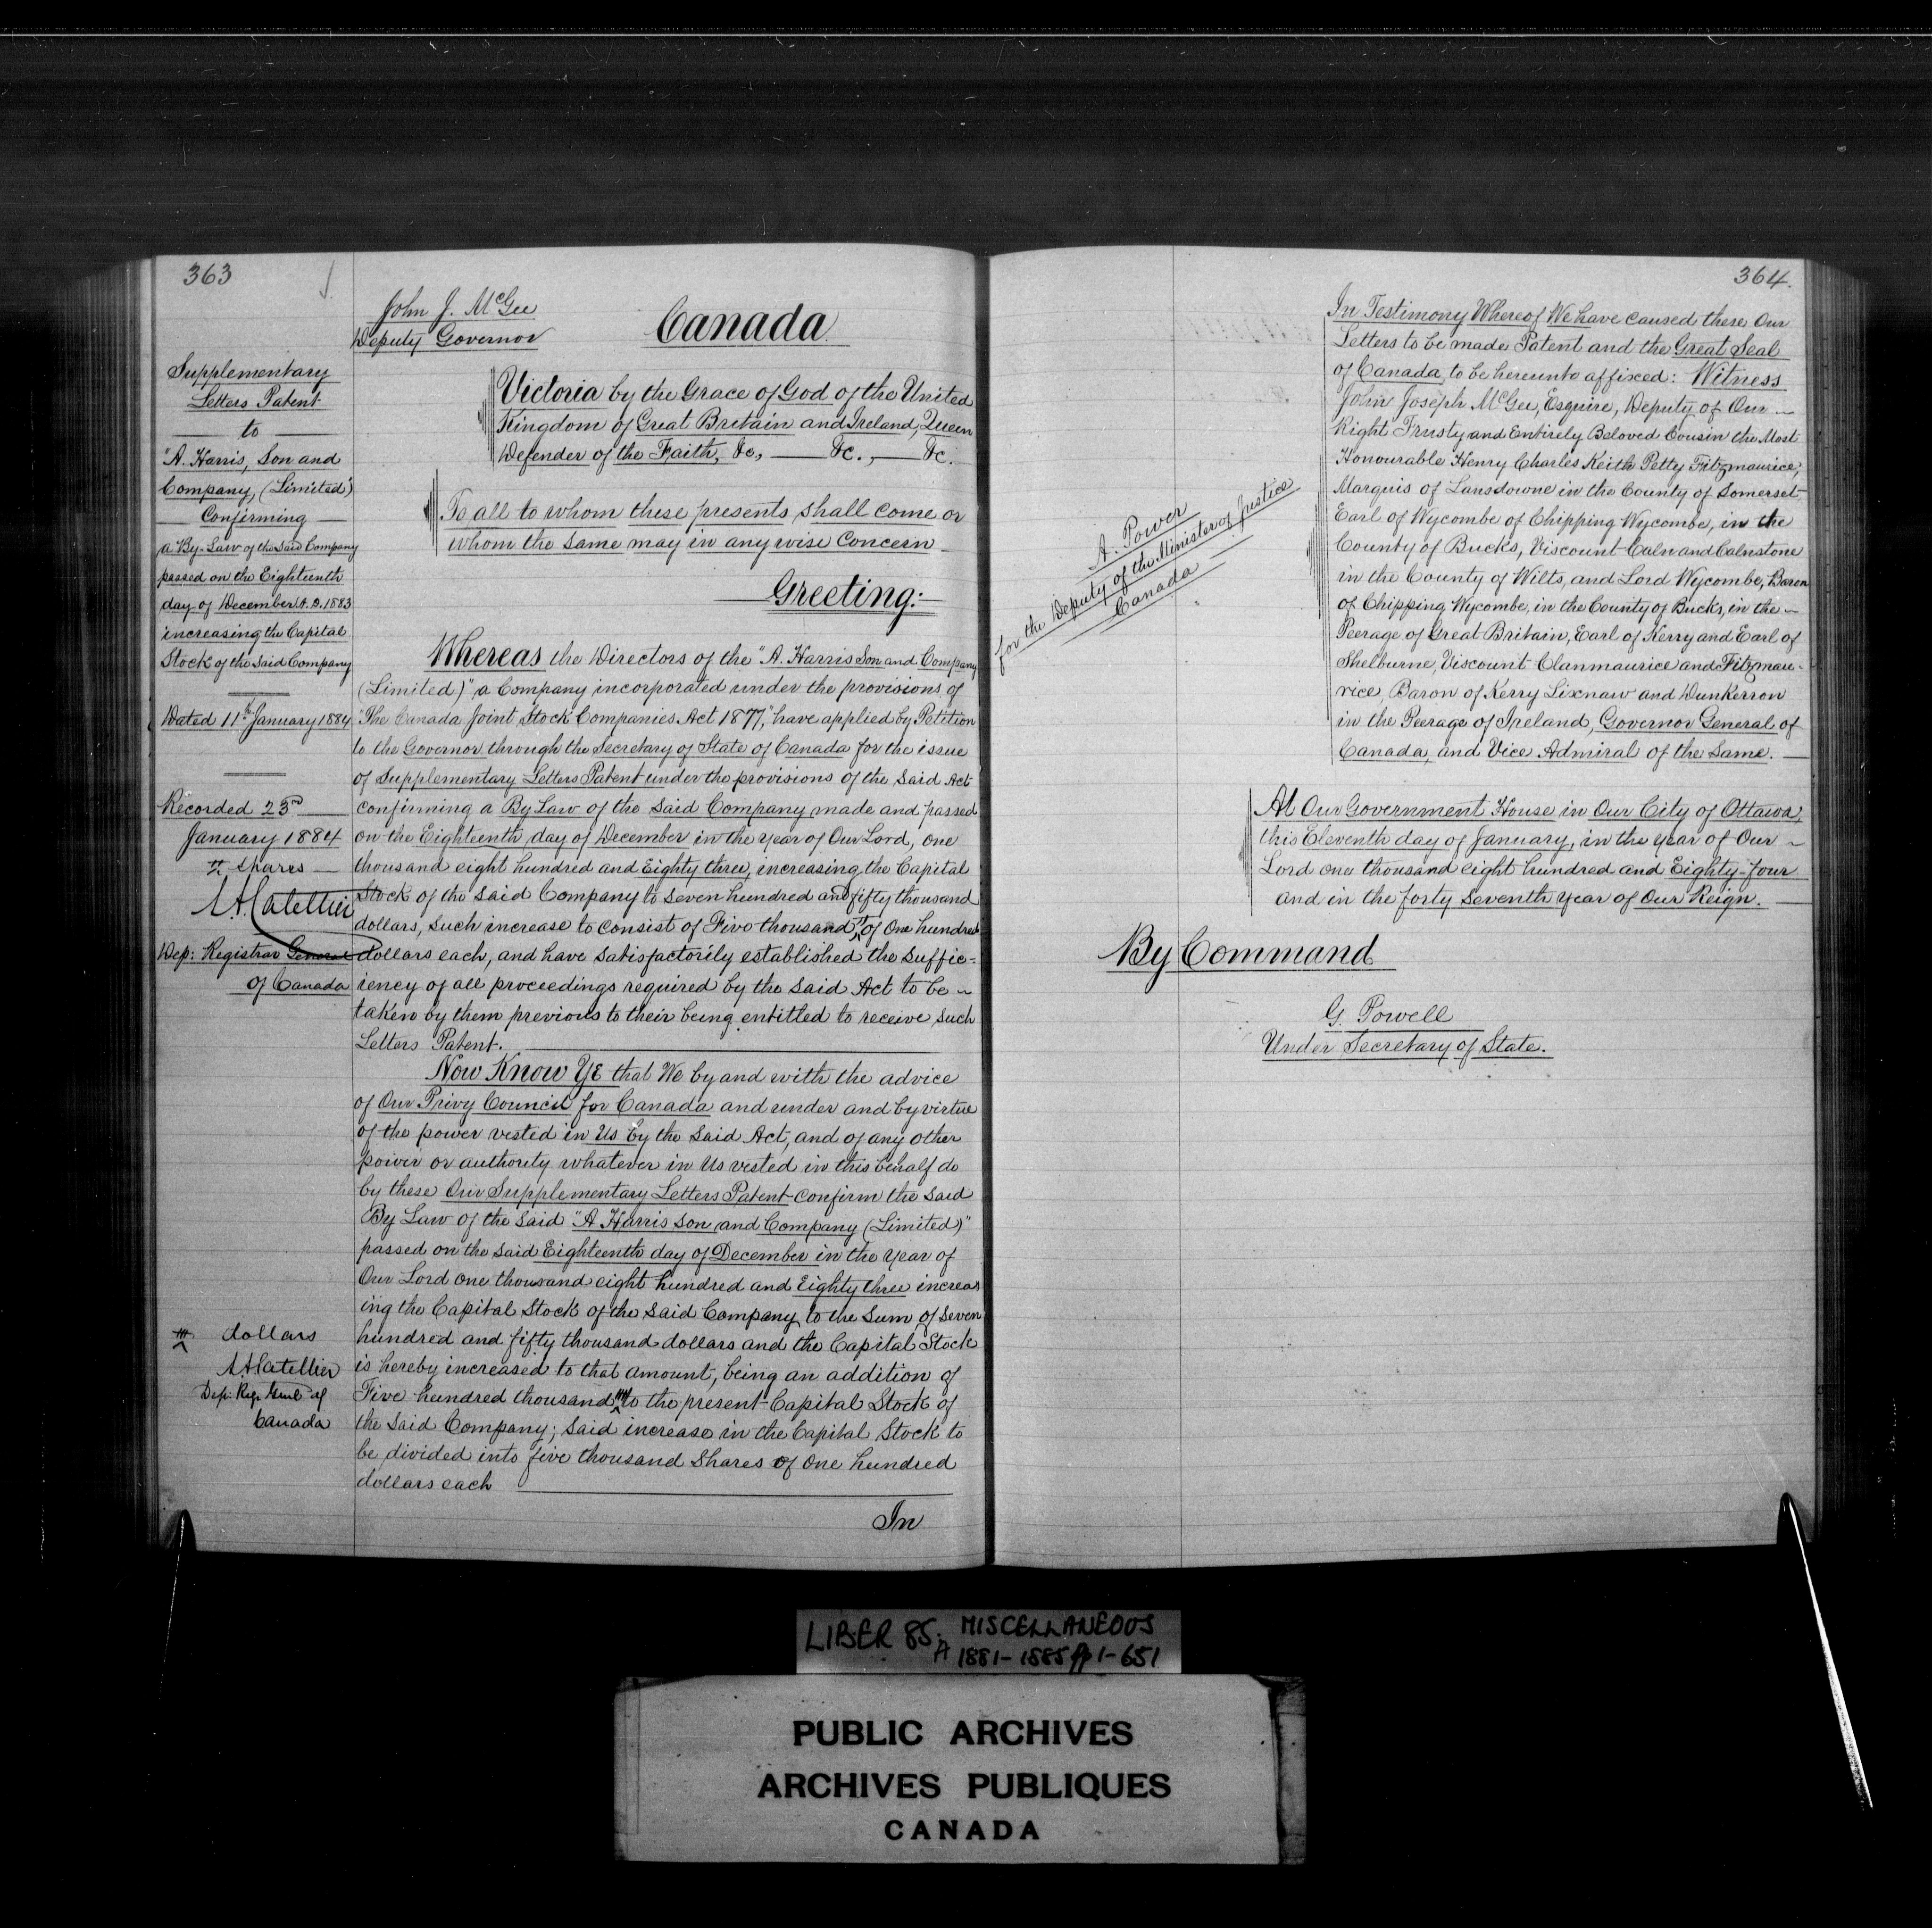 363
John J. McGee
Deputy Governor
Canada
Supplementary
Letters Patent
to
"A. Harris, Son and
Company, (Limited")
Confirming
a By-Law of the said Company
passed on the Eighteenth
day of December A.D. 1883
increasing the Capital
Stock of the said Company
Dated 11th January 1884
Recorded 23rd
January 1884
shares
A. Catellier
Dep: Registrar General
of Canada
dollars
A. Catellier
Dep: Reg. Genl of
Canada
Victoria by the Grace of God of the United
Kingdom of Great Britain and Ireland, Queen
Defender of the Faith, &c, — &c., — &c.
To all to whom these presents shall come or
whom the same may in any wise Concern
Greeting:
Whereas the Directors of the "A. Harris Son and Company
(Limited)" a Company incorporated under the provisions of
"The Canada Joint Stock Companies Act 1877," have applied by Petition
to the Governor through the Secretary of State of Canada for the issue
of Supplementary Letters Patent under the provisions of the said Act
confirming a By Law of the said Company made and passed
on the Eighteenth day of December in the year of Our Lord, one
thousand eight hundred and Eighty three, increasing the Capital
Stock of the said Company to seven hundred and fifty thousand
dollars, such increase to consist of Five thousand of One hundred
dollars each, and have satisfactorily established the suffic=
iency of all proceedings required by the said Act to be
taken by them previous to their being entitled to receive such
Letters Patent.
Now Know Ye that We by and with the advice
of Our Privy Council for Canada and under and by virtue
of the power vested in Us by the said Act, and of any other
power or authority whatever in Us vested in this behalf do
by these Our Supplementary Letters Patent confirm the said
By Law of the said "A Harris Son and Company (Limited)"
passed on the said Eighteenth day of December in the year of
Our Lord one thousand eight hundred and Eighty three increas
ing the Capital Stock of the said Company to the sum of seven
hundred and fifty thousand dollars and the Capital Stock
is hereby increased to that amount, being an addition of
Five hundred thousand to the present Capital Stock of
the said Company; said increase in the Capital Stock to
be divided into five thousand shares of one hundred
dollars each
In
364.
A. Power
for the Deputy of the Minister of Justice
Canada
In Testimony Whereof We have caused these Our
Letters to be made Patent and the Great Seal
of Canada, to be hereunto affixed: Witness
John Joseph McGee, Esquire, Deputy of Our
Right Trusty and Entirely Beloved Cousin the Most
Honourable Henry Charles Keith Petty Fitzmaurice,
Marquis of Lansdowne in the County of Somerset
Earl of Wycombe of Chipping Wycombe, in the
County of Bucks, Viscount Caln and Calnstone
in the County of Wilts, and Lord Wycombe, Baron
of Chipping Wycombe, in the County of Bucks, in the
Peerage of Great Britain, Earl of Kerry and Earl of
Shelburne, Viscount Clanmaurice and Fitzmau-
rice, Baron of Kerry Lixnaw and Dunkerron
in the Peerage of Ireland, Governor General of
Canada, and Vice Admiral of the same.
At Our Government House in Our City of Ottawa,
this Eleventh day of January, in the year of Our
Lord one thousand eight hundred and Eighty-four
and in the forty seventh year of Our Reign.
By Command
G. Powell
Under Secretary of State.
LIBER 85. MISCELLANEOUS
A 1881-1885 pp 1-651
PUBLIC ARCHIVES
ARCHIVES PUBLIQUES
CANADA